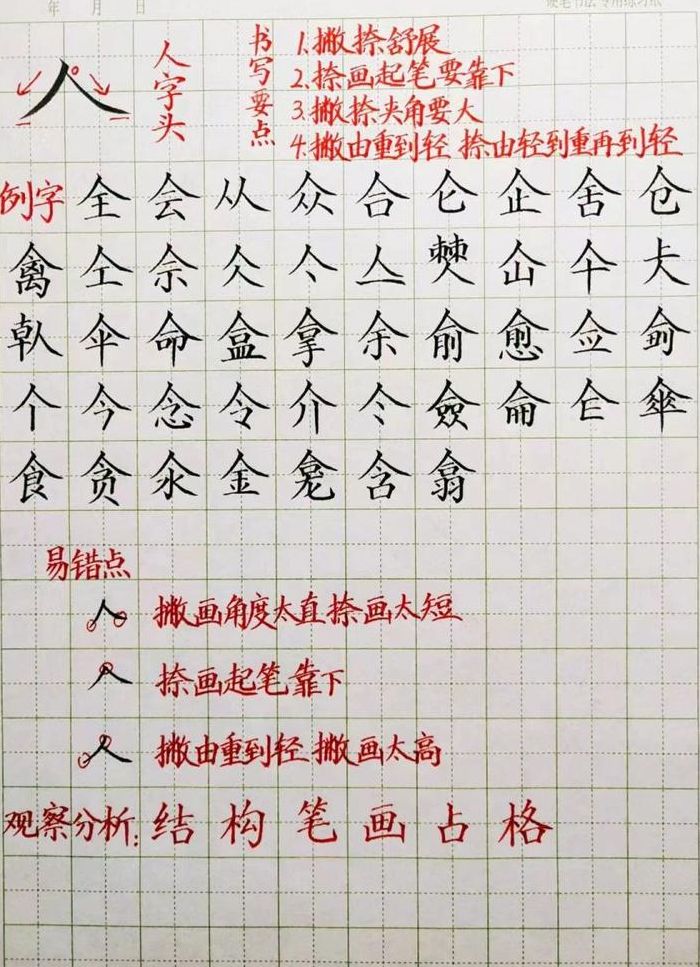 年 月 日
人
人字头
书写要点
1.撇捺舒展
2.捺画起笔要靠下
3.撇捺夹角要大
4.撇由重到轻 捺由轻到重再到轻
例字 全 会 从 众 合 仑 企 舍 仓
禽 仝 佘 仌 亽 亼 僰 仚 仐
倝 伞 命 盒 拿 余 俞 愈 佥 俞
个 今 念 令 介 仒 僉 侖 㐰 傘
食 贪 汆 金 龛 含 翕
易错点
人 撇画角度太直 捺画太短
人 捺画起笔靠下
人 撇由重到轻 撇画太高
观察分析: 结 构 笔 画 占 格